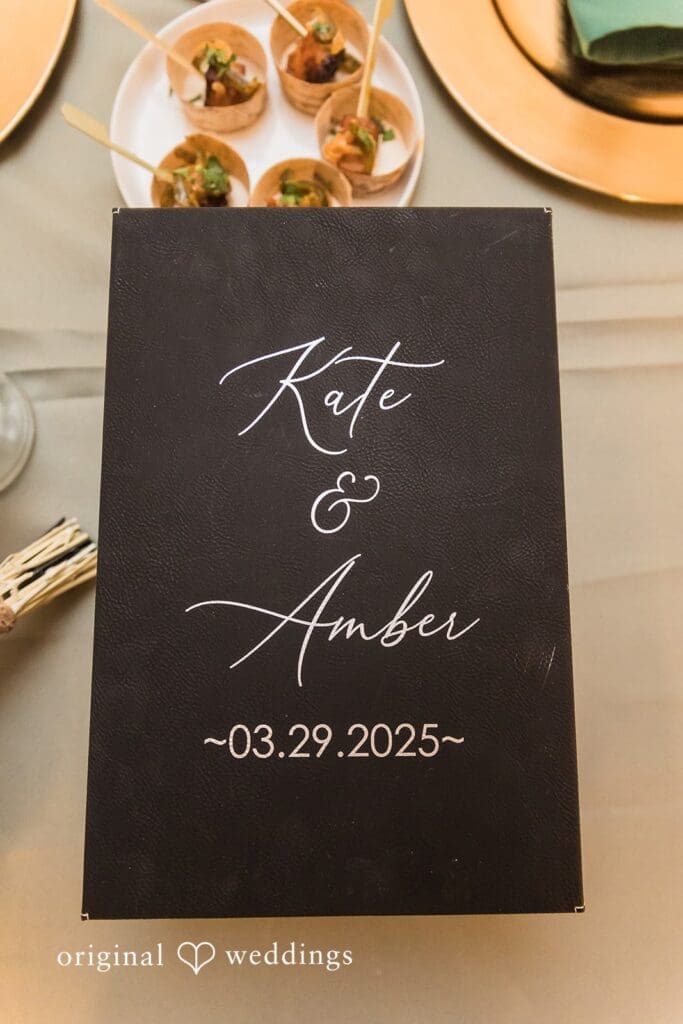 Kate
&
Amber
~03.29.2025~
original weddings